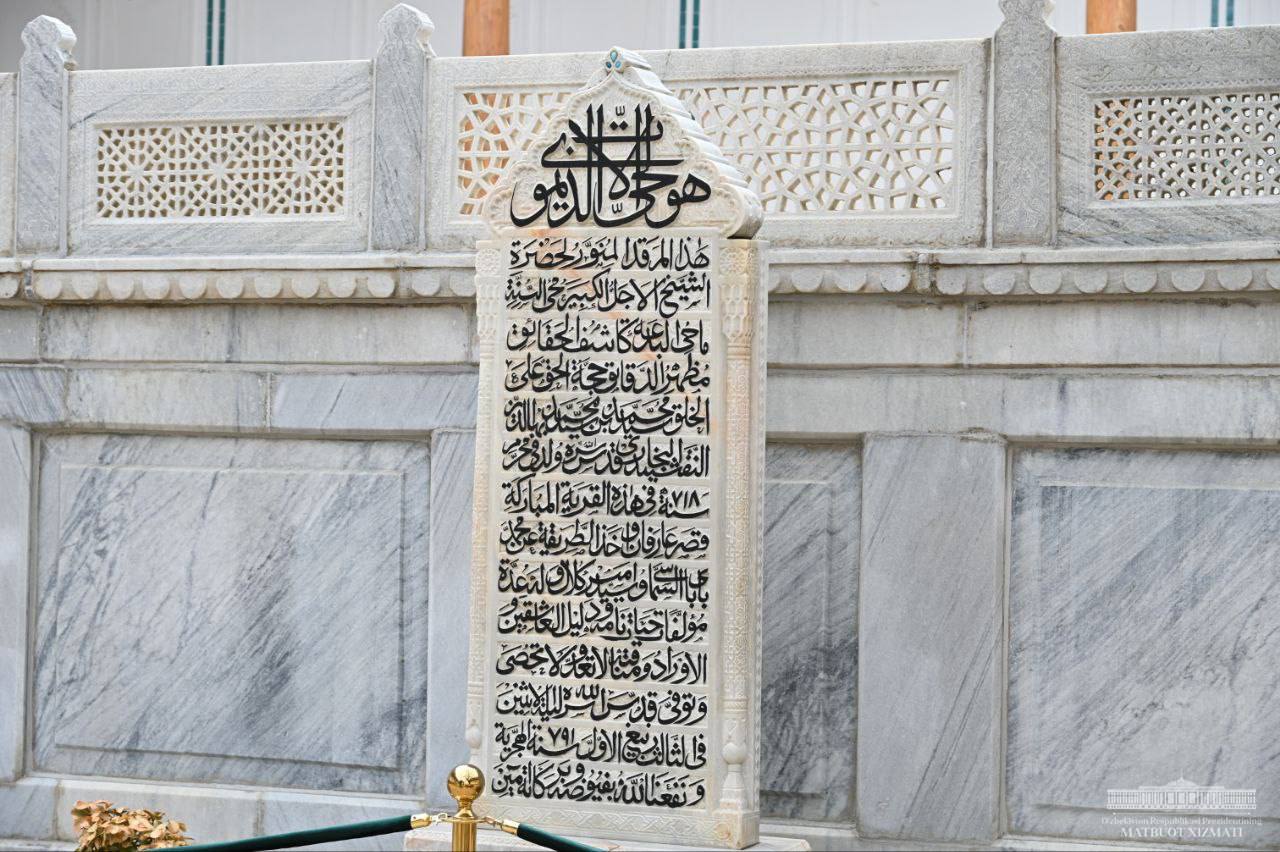 هو الحي الذي لا يموت
هذا المرقد المنور لحضرة
الشيخ الاجل الكبير محي السنة
ماحي البدعة كاشف الحقائق
مظهر الدقائق حجة الحق على
الخلق محمد بن محمد بهاالدين
النقشبند البخاري قدس سره ولد في محرم
سنة ٧١٨ في هذه القرية المباركة
قصر عارفان واخذ الطريقة عن محمد
بابا السماسي وسيد امير كلال وله عدة
مؤلفات حيات نامه و دليل العاشقين و
الأوراد ومناقبه لا تعد ولا تحصى
وتوفي قدس الله سره ليلة الاثنين
في الثالث ربيع الاول سنة ٧٩١ الهجرية
ونفعنا الله بفيوضه وبركاته آمين
O'zbekiston Respublikasi Prezidentining
MATBUOT XIZMATI